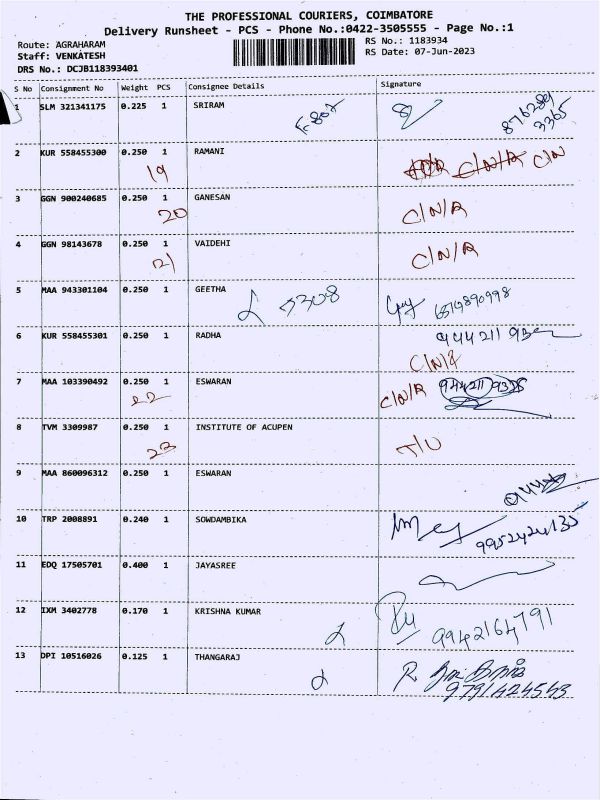 THE PROFESSIONAL COURIERS, COIMBATORE
Delivery Runsheet - PCS - Phone No.:0422-3505555 - Page No.:1
Route: AGRAHARAM
RS No.: 1183934
Staff: VENKATESH
RS Date: 07-Jun-2023
DRS No.: DCJB118393401
S No Consignment No Weight PCS Consignee Details Signature
1 SLM 321341175 0.225 1 SRIRAM
2 KUR 558455300 0.250 1 RAMANI
19 C/N/R C/N
3 GGN 900240685 0.250 1 GANESAN
20 C/N/R
4 GGN 98143678 0.250 1 VAIDEHI
21 C/N/R
5 MAA 943301104 0.250 1 GEETHA
5308
6 KUR 558455301 0.250 1 RADHA
C/N/R
7 MAA 103390492 0.250 1 ESWARAN
22 C/N/R
8 TVM 3309987 0.250 1 INSTITUTE OF ACUPEN
23 T/U
9 MAA 860096312 0.250 1 ESWARAN
10 TRP 2008891 0.240 1 SOWDAMBIKA
9952424135
11 EDQ 17505701 0.400 1 JAYASREE
12 IXM 3402778 0.170 1 KRISHNA KUMAR
9942164791
13 DPI 10516026 0.125 1 THANGARAJ
9791424543